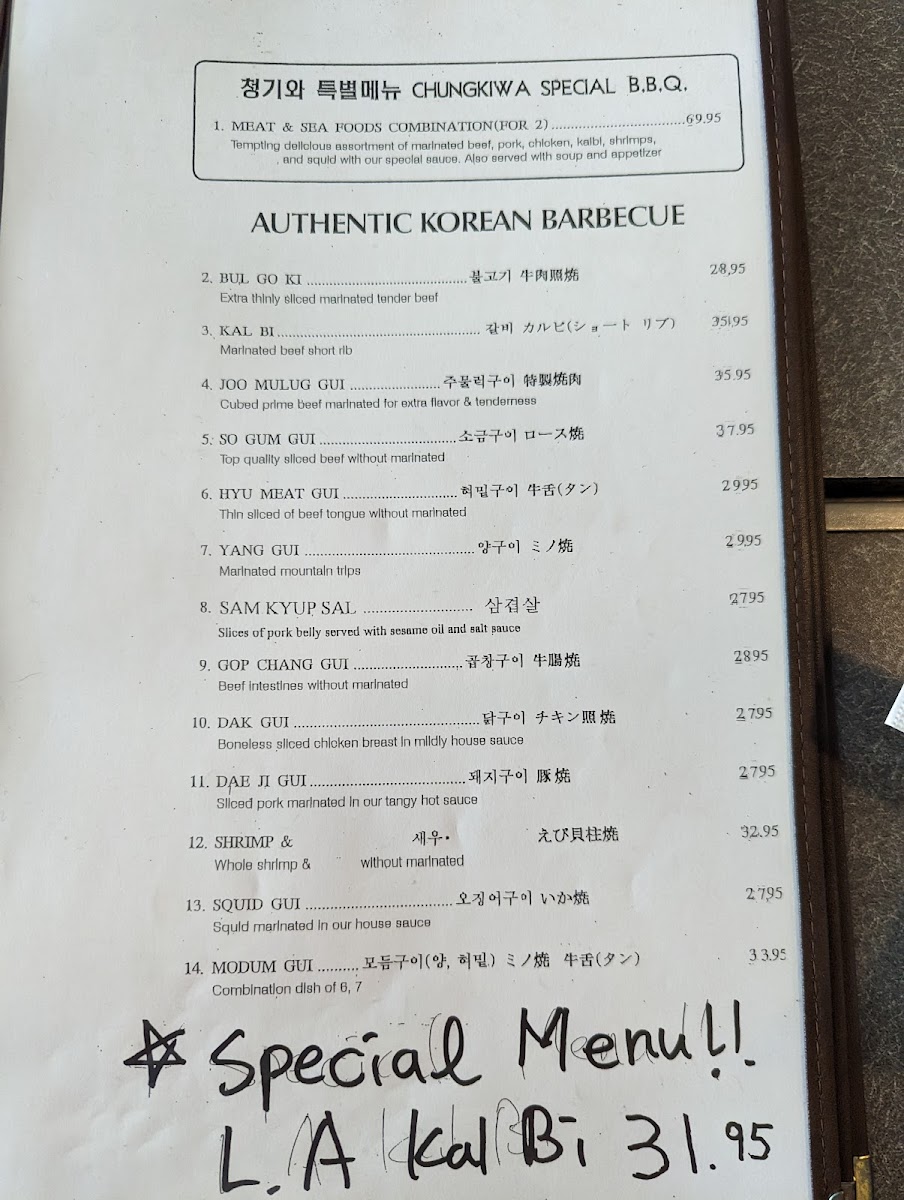 청기와 특별메뉴 CHUNGKIWA SPECIAL B.B.Q.
1. MEAT & SEA FOODS COMBINATION(FOR 2)..............................69.95
Tempting delicious assortment of marinated beef, pork, chicken, kalbi, shrimps,
and squid with our special sauce. Also served with soup and appetizer
AUTHENTIC KOREAN BARBECUE
2. BUL GO KI ........................................불고기 牛肉照焼 28.95
Extra thinly sliced marinated tender beef
3. KAL BI.................................................. 갈비 カルビ(ショート リブ) 35.95
Marinated beef short rib
4. JOO MULUG GUI ......................주물럭구이 特製焼肉 35.95
Cubed prime beef marinated for extra flavor & tenderness
5. SO GUM GUI..................................소금구이 ロース焼 37.95
Top quality sliced beef without marinated
6. HYU MEAT GUI............................혀밑구이 牛舌(タン) 29.95
Thin sliced of beef tongue without marinated
7. YANG GUI ..........................................양구이 ミノ焼 29.95
Marinated mountain trips
8. SAM KYUP SAL ........................... 삼겹살 27.95
Slices of pork belly served with sesame oil and salt sauce
9. GOP CHANG GUI...........................곱창구이 牛腸焼 28.95
Beef intestines without marinated
10. DAK GUI ..............................................닭구이 チキン照焼 27.95
Boneless sliced chicken breast in mildly house sauce
11. DAE JI GUI.......................................돼지구이 豚焼 27.95
Sliced pork marinated in our tangy hot sauce
12. SHRIMP & 새우· えび貝柱焼 32.95
Whole shrimp & without marinated
13. SQUID GUI ....................................오징어구이 いか焼 27.95
Squid marinated in our house sauce
14. MODUM GUI ..........모듬구이(양, 혀밑) ミノ焼 牛舌(タン) 33.95
Combination dish of 6, 7
☆ Special Menu!!
L.A Kal Bi 31.95